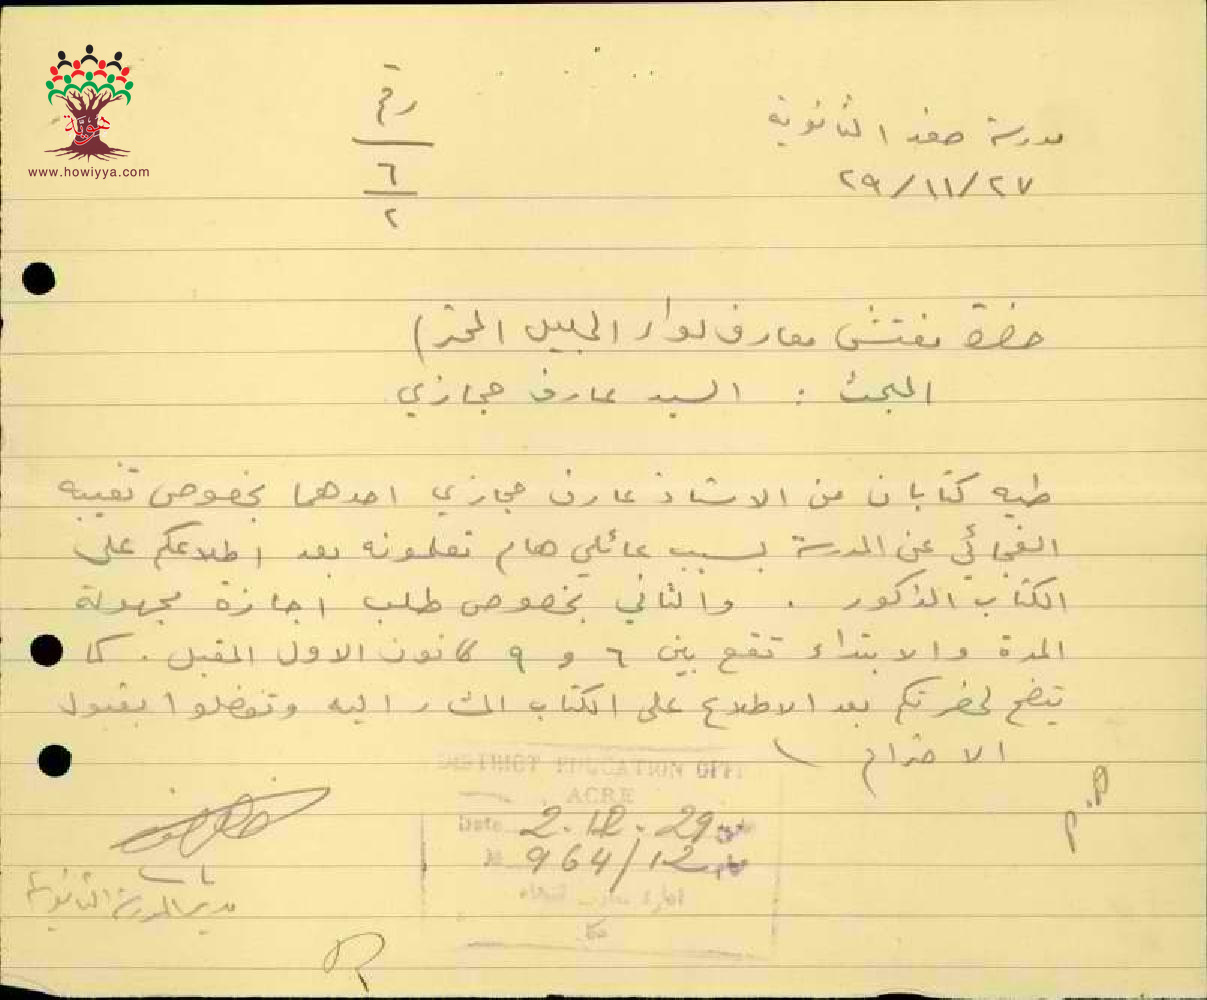 هوية
www.howiyya.com
رقم
٦
٢
مدرسة صفد الثانوية
٢٩/١١/٢٧
حضرة مفتش معارف لواء الجليل المحترم
البحث : السيد عارف حجازي
طيه كتابان من الاستاذ عارف حجازي احدهما بخصوص تغيبه
الفجائي عن المدرسة لسبب عائلي هام تعلمونه بعد اطلاعكم على
الكتاب المذكور . والثاني بخصوص طلب اجازة مجهولة
المدة والابتداء تقع بين ٦ و ٩ كانون الاول المقبل . كما
يتضح لحضرتكم بعد الاطلاع على الكتاب المشار اليه وتفضلوا بقبول
الاحترام
DISTRICT EDUCATION OFFI
ACRE
Date 2.12.29
964/12
عكا
P.P
مدير المدرسة الثانوية